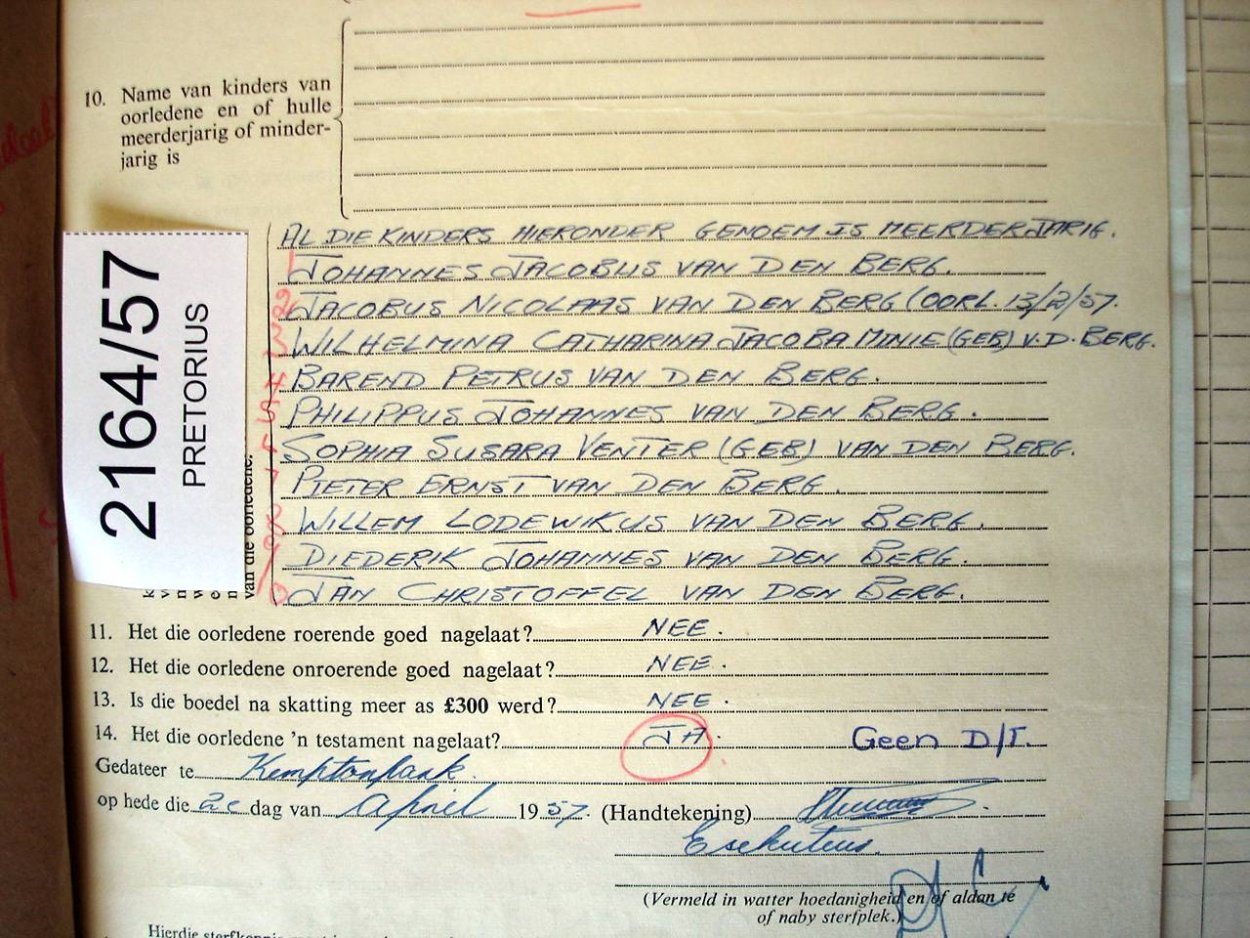 10. Name van kinders van
oorledene en of hulle
meerderjarig of minder-
jarig is
AL DIE KINDERS HIERONDER GENOEM IS MEERDERJARIG.
1 JOHANNES JACOBUS VAN DEN BERG.
2 JACOBUS NICOLAAS VAN DEN BERG (OORL. 13/2/57.
3 WILHELMINA CATHARINA JACOBA MINIE (GEB) V.D. BERG.
4 BAREND PETRUS VAN DEN BERG.
5 PHILIPPUS JOHANNES VAN DEN BERG.
SOPHIA SUSARA VENTER (GEB) VAN DEN BERG.
PIETER ERNST VAN DEN BERG.
8 WILLEM LODEWIKUS VAN DEN BERG.
9 DIEDERIK JOHANNES VAN DEN BERG.
10 JAN CHRISTOFFEL VAN DEN BERG.
2164/57
PRETORIUS
van die oorledene.
11. Het die oorledene roerende goed nagelaat? NEE.
12. Het die oorledene onroerende goed nagelaat? NEE.
13. Is die boedel na skatting meer as £300 werd? NEE.
14. Het die oorledene 'n testament nagelaat? JA. Geen D/T.
Gedateer te Kemptonpark.
op hede die 2e dag van April 1957. (Handtekening)
Eksekuteur.
(Vermeld in watter hoedanigheid en of aldan te
of naby sterfplek.)